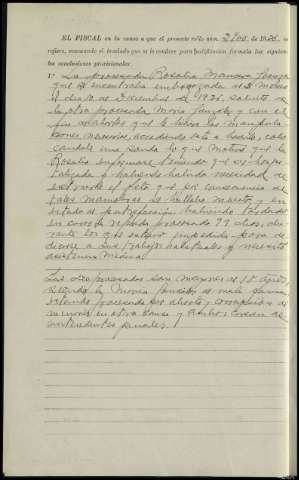 EL FISCAL en la causa a que el presente rollo núm. 2900 de 1926 se
refiere, evacuando el traslado que se le confiere para calificación formula las siguientes
conclusiones provisionales:
1ª La procesada Rosalia
que se encontraba embarazada de 5 meses
el dia 10 de Diciembre de 1926, solicitó de
la otra procesada Maria y con el
fin de abortar que le hiciera las manipula
ciones necesarias, accediendo esta a hacerlo, colo
candole una sonda lo que motivó que la
Rosalia enfermase teniendo que ser hospi
talizada y habiendo habido necesidad de
extraerle el feto que a consecuencia de
tales maniobras se hallaba muerto y en
estado de putrefacción habiendo tardado
en curar la referida procesada 99 dias, du
rante los que estuvo impedida para de
dicarse a sus trabajos habituales y necesitó
asistencia médica
Las dos procesadas son mayores de 18 años,
siendo la Maria de mala fama
estando procesada por aborto y corrupción de
menores en otra causa y ambas carecen de
antecedentes penales